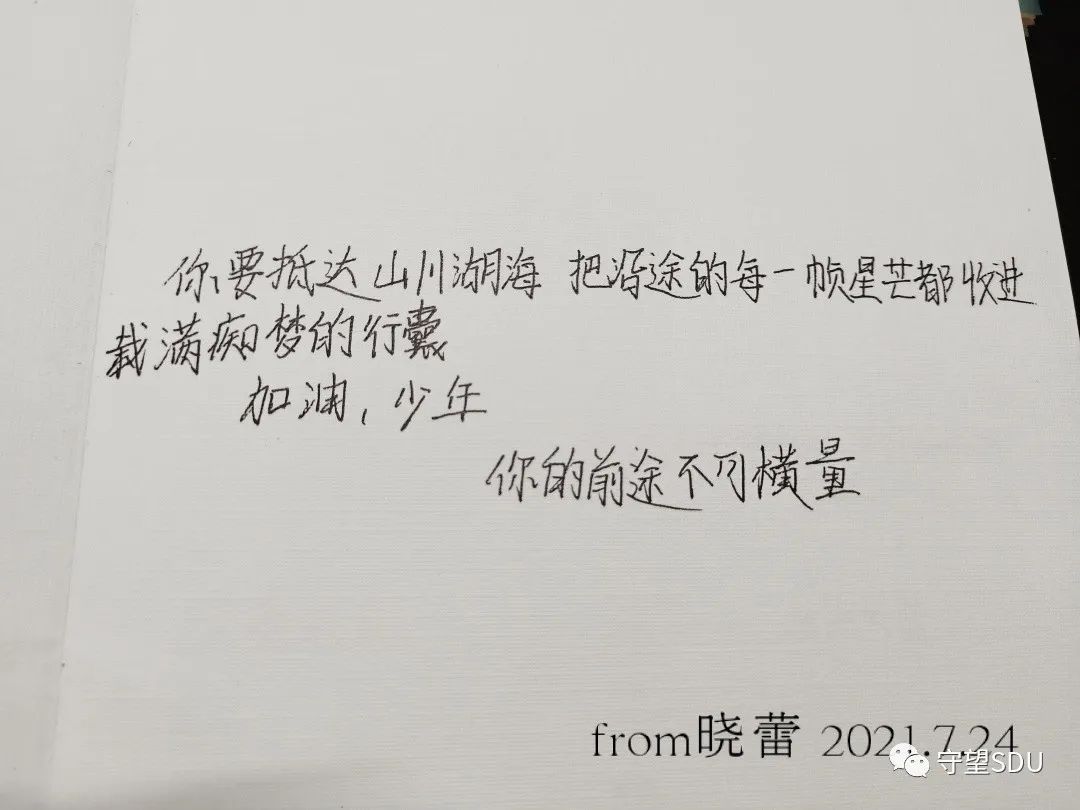 你要抵达山川湖海 把沿途的每一帧星芒都收进
载满痴梦的行囊
加油，少年
你的前途不可横量
from晓蕾 2021.7.24
守望SDU